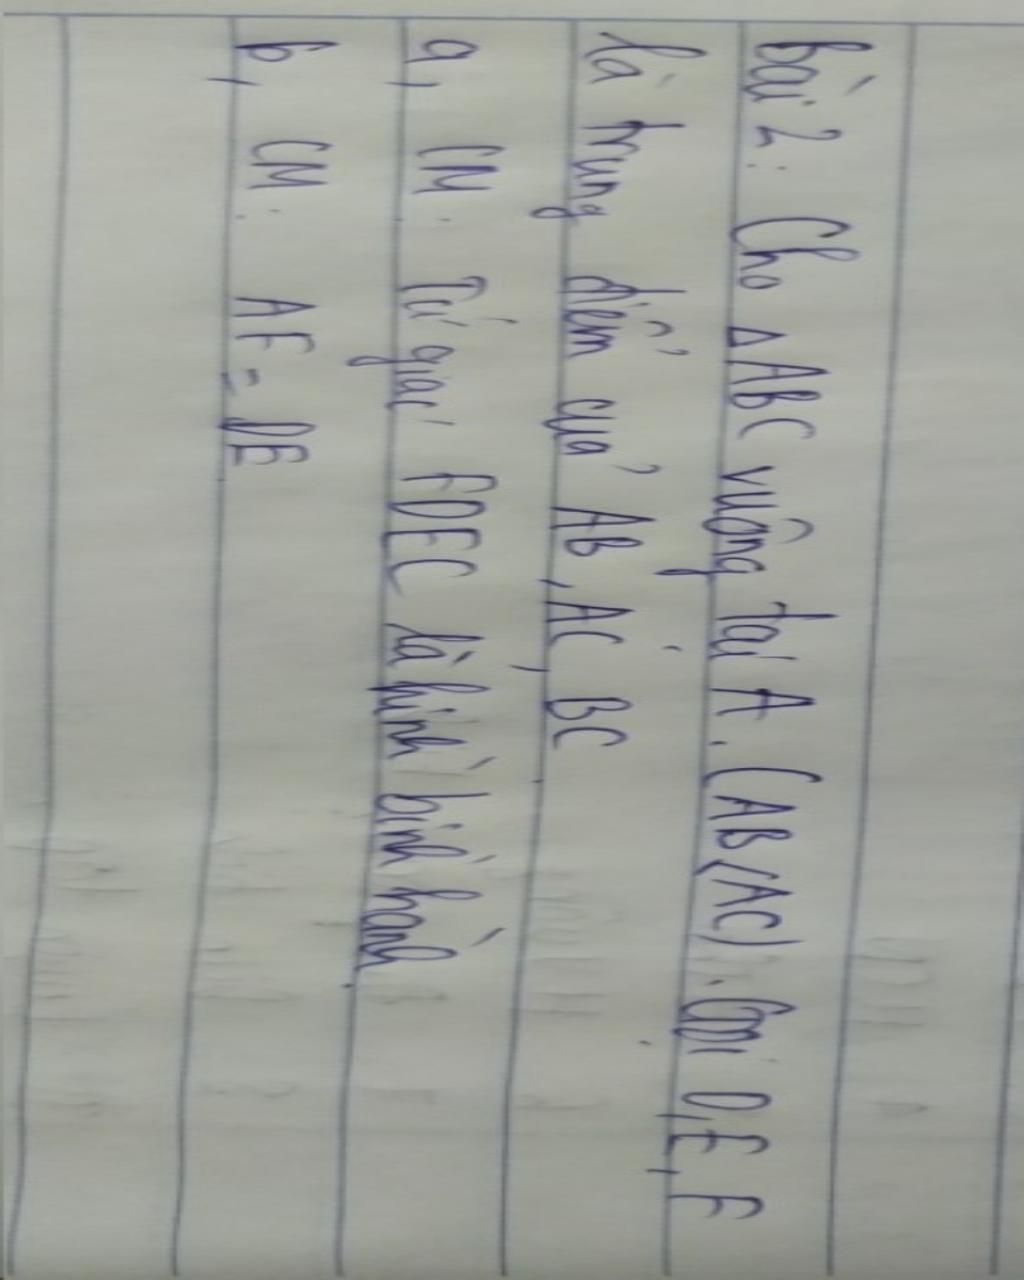 bài 2: Cho △ABC vuông tại A. (AB<AC). Gọi D,E,F
là trung điểm của AB, AC, BC
a, CM: Tứ giác FDEC là hình bình hành.
b, CM: AF = DE